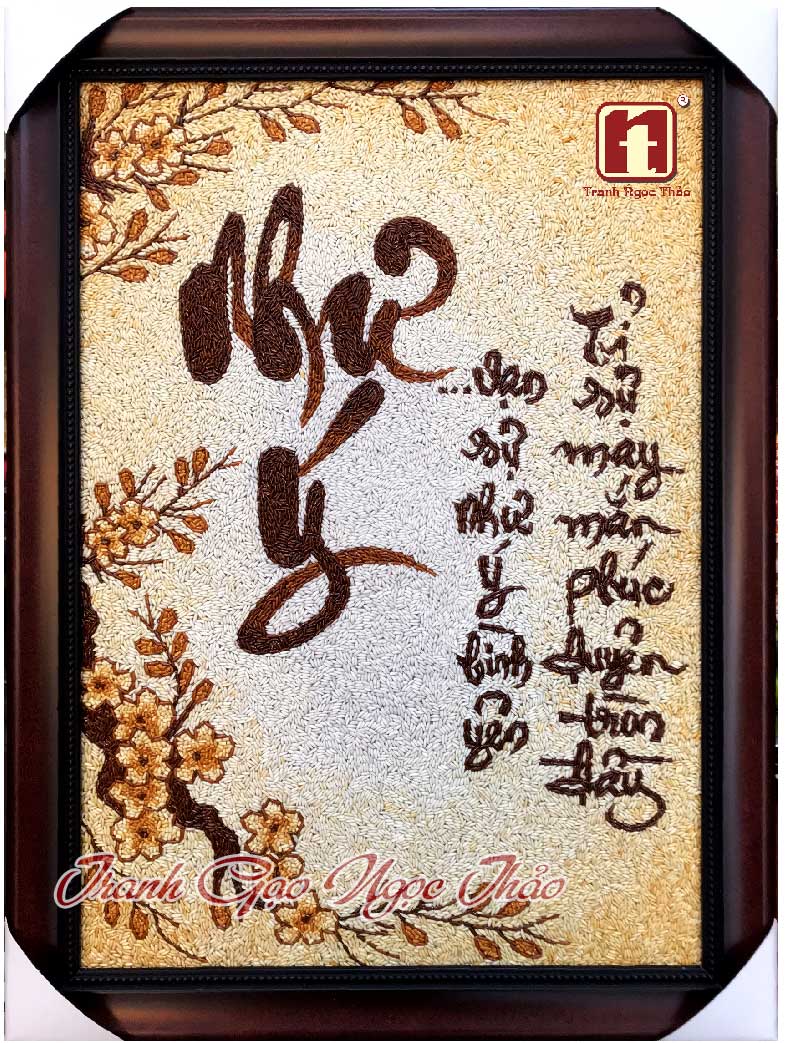 Tranh Ngọc Thảo
Như
Ý
...vạn sự như ý bình yên
Tỉ sự may mắn phúc duyên tràn đầy
Tranh Gạo Ngọc Thảo